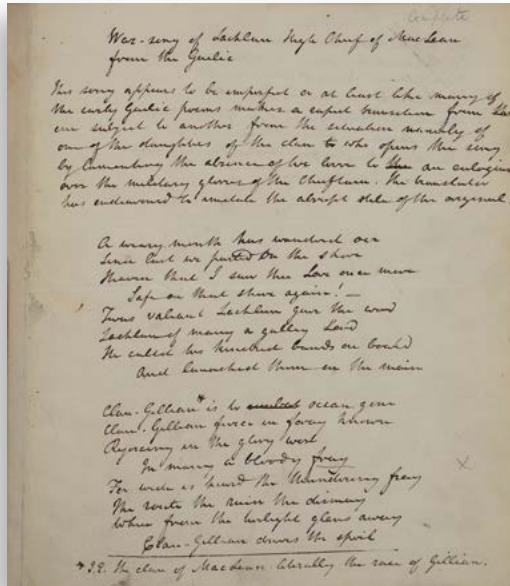 Complete
War-song of Lachlan High Chief of MacLean
from the Gaelic
This song appears to be imperfect or at least like many of
the early Gaelic poems makes a rapid transition from
one subject to another from the situation namely of
one of the daughters of the clan to who opens the song
by lamenting the absence of her lover to an eulogium
over the military glories of the Chieftain. The translator
has endeavoured to imitate the abrupt stile of the original.
A weary month has wandered oer
Since last we parted on the shore
Heaven that I saw thee Love once more
Safe on that shore again! —
Twas valiant Lachlan gave the word
Lachlan of many a galley Lord
He called his kindred bands on board
And launched them on the main
Clan-Gillian* is to ocean gone
Clan-Gillian fierce in foray known
Rejoicing in the glory won
In many a bloody fray
For wide is heard the thundering fray
The rout the ruin the dismay
When from the twilight glens away
Clan-Gillian drives the spoil
X
* I.E. the clan of MacLean literally the race of Gillian.